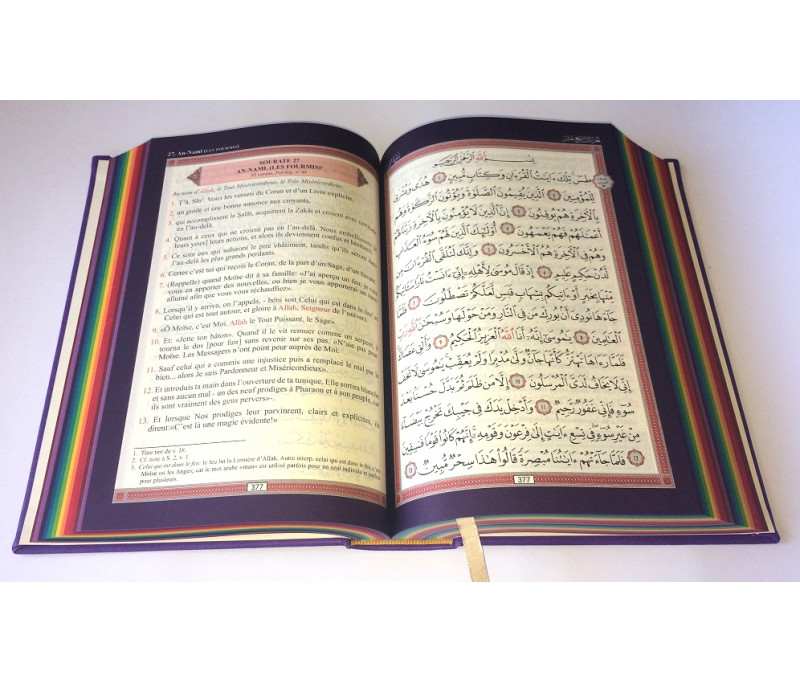 27. An-Naml (LES FOURMIS)
SOURATE 27
AN-NAML (LES FOURMIS)¹
Au nom d'Allah, le Tout Miséricordieux, le Très Miséricordieux.
1. Tâ, Sîn². Voici les versets du Coran et d'un Livre explicite,
2. un guide et une bonne annonce aux croyants,
3. qui accomplissent la Ṣalât, acquittent la Zakât et croient avec
en l'au-delà.
4. Quant à ceux qui ne croient pas en l'au-delà, Nous embellissons
leurs yeux] leurs actions, et alors ils deviennent confus et
5. Ce sont eux qui subiront le pire châtiment, tandis qu'ils seront dans
l'au-delà les plus grands perdants.
6. Certes c'est toi qui reçois le Coran, de la part d'un Sage, d'un
7. (Rappelle) quand Moïse dit à sa famille: «J'ai aperçu un feu; je vais
vous en apporter des nouvelles, ou bien je vous apporterai un
allumé afin que vous vous réchauffiez».
8. Lorsqu'il y arriva, on l'appela, - béni soit Celui qui est dans le feu³ et
Celui qui est tout autour, et gloire à Allah, Seigneur de l'univers.
9. «Ô Moïse, c'est Moi, Allah le Tout Puissant, le Sage».
10. Et: «Jette ton bâton». Quand il le vit remuer comme un serpent, il
tourna le dos [pour fuir] sans revenir sur ses pas. «N'aie pas peur,
Moïse. Les Messagers n'ont point peur auprès de Moi.
11. Sauf celui qui a commis une injustice puis a remplacé le mal par le
bien... alors Je suis Pardonneur et Miséricordieux».
12. Et introduis ta main dans l'ouverture de ta tunique. Elle sortira blanche
et sans aucun mal - un des neuf prodiges à Pharaon et à son peuple, car
ils sont vraiment des gens pervers»-.
13. Et lorsque Nos prodiges leur parvinrent, clairs et explicites, ils
dirent:«C'est là une magie évidente!»
1. Titre tiré du v. 18.
2. Cf. note à S. 2, v. 1.
3. Celui qui est dans le feu: le feu fut la Lumière d'Allah. Autre interp. celui qui est dans le feu, c'est
Moïse ou les Anges; car le mot arabe «man» est utilisé parfois pour un seul individu et parfois
pour plusieurs.
377
بِسْمِ اللَّهِ الرَّحْمَٰنِ الرَّحِيمِ
طسٓ تِلْكَ ءَايَٰتُ الْقُرْءَانِ وَكِتَابٍ مُّبِينٍ ١ هُدًى وَبُشْرَىٰ
لِلْمُؤْمِنِينَ ٢ الَّذِينَ يُقِيمُونَ الصَّلَوٰةَ وَيُؤْتُونَ الزَّكَوٰةَ وَهُم
بِالْءَاخِرَةِ هُمْ يُوقِنُونَ ٣ إِنَّ الَّذِينَ لَا يُؤْمِنُونَ بِالْءَاخِرَةِ زَيَّنَّا لَهُمْ
أَعْمَٰلَهُمْ فَهُمْ يَعْمَهُونَ ٤ أُو۟لَٰٓئِكَ الَّذِينَ لَهُمْ سُوٓءُ الْعَذَابِ
وَهُمْ فِي الْءَاخِرَةِ هُمُ الْأَخْسَرُونَ ٥ وَإِنَّكَ لَتُلَقَّى الْقُرْءَانَ مِن
لَّدُنْ حَكِيمٍ عَلِيمٍ ٦ إِذْ قَالَ مُوسَىٰ لِأَهْلِهِۦٓ إِنِّيٓ ءَانَسْتُ نَارًا سَـَٔاتِيكُم
مِّنْهَا بِخَبَرٍ أَوْ ءَاتِيكُم بِشِهَابٍ قَبَسٍ لَّعَلَّكُمْ تَصْطَلُونَ ٧ فَلَمَّا
جَآءَهَا نُودِيَ أَنۢ بُورِكَ مَن فِي النَّارِ وَمَنْ حَوْلَهَا وَسُبْحَٰنَ اللَّهِ رَبِّ
الْعَٰلَمِينَ ٨ يَٰمُوسَىٰٓ إِنَّهُۥٓ أَنَا اللَّهُ الْعَزِيزُ الْحَكِيمُ ٩ وَأَلْقِ عَصَاكَ
فَلَمَّا رَءَاهَا تَهْتَزُّ كَأَنَّهَا جَآنٌّ وَلَّىٰ مُدْبِرًا وَلَمْ يُعَقِّبْ يَٰمُوسَىٰ لَا تَخَفْ
إِنِّي لَا يَخَافُ لَدَيَّ الْمُرْسَلُونَ ١٠ إِلَّا مَن ظَلَمَ ثُمَّ بَدَّلَ حُسْنًۢا بَعْدَ
سُوٓءٍ فَإِنِّي غَفُورٌ رَّحِيمٌ ١١ وَأَدْخِلْ يَدَكَ فِي جَيْبِكَ تَخْرُجْ بَيْضَآءَ
مِنْ غَيْرِ سُوٓءٍ فِي تِسْعِ ءَايَٰتٍ إِلَىٰ فِرْعَوْنَ وَقَوْمِهِۦٓ إِنَّهُمْ كَانُوا۟ قَوْمًا فَٰسِقِينَ
١٢ فَلَمَّا جَآءَتْهُمْ ءَايَٰتُنَا مُبْصِرَةً قَالُوا۟ هَٰذَا سِحْرٌ مُّبِينٌ ١٣
377